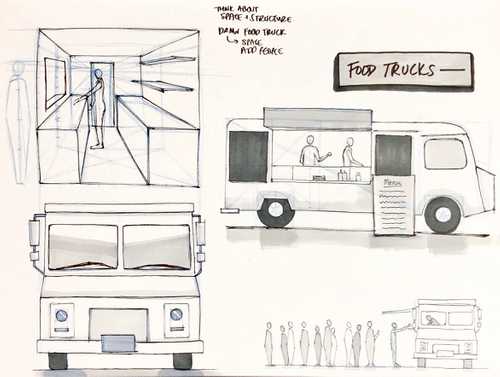 THINK ABOUT
SPACE + STRUCTURE
DRAW FOOD TRUCK
↳ SPACE
ADD PEOPLE
FOOD TRUCKS —
MENU